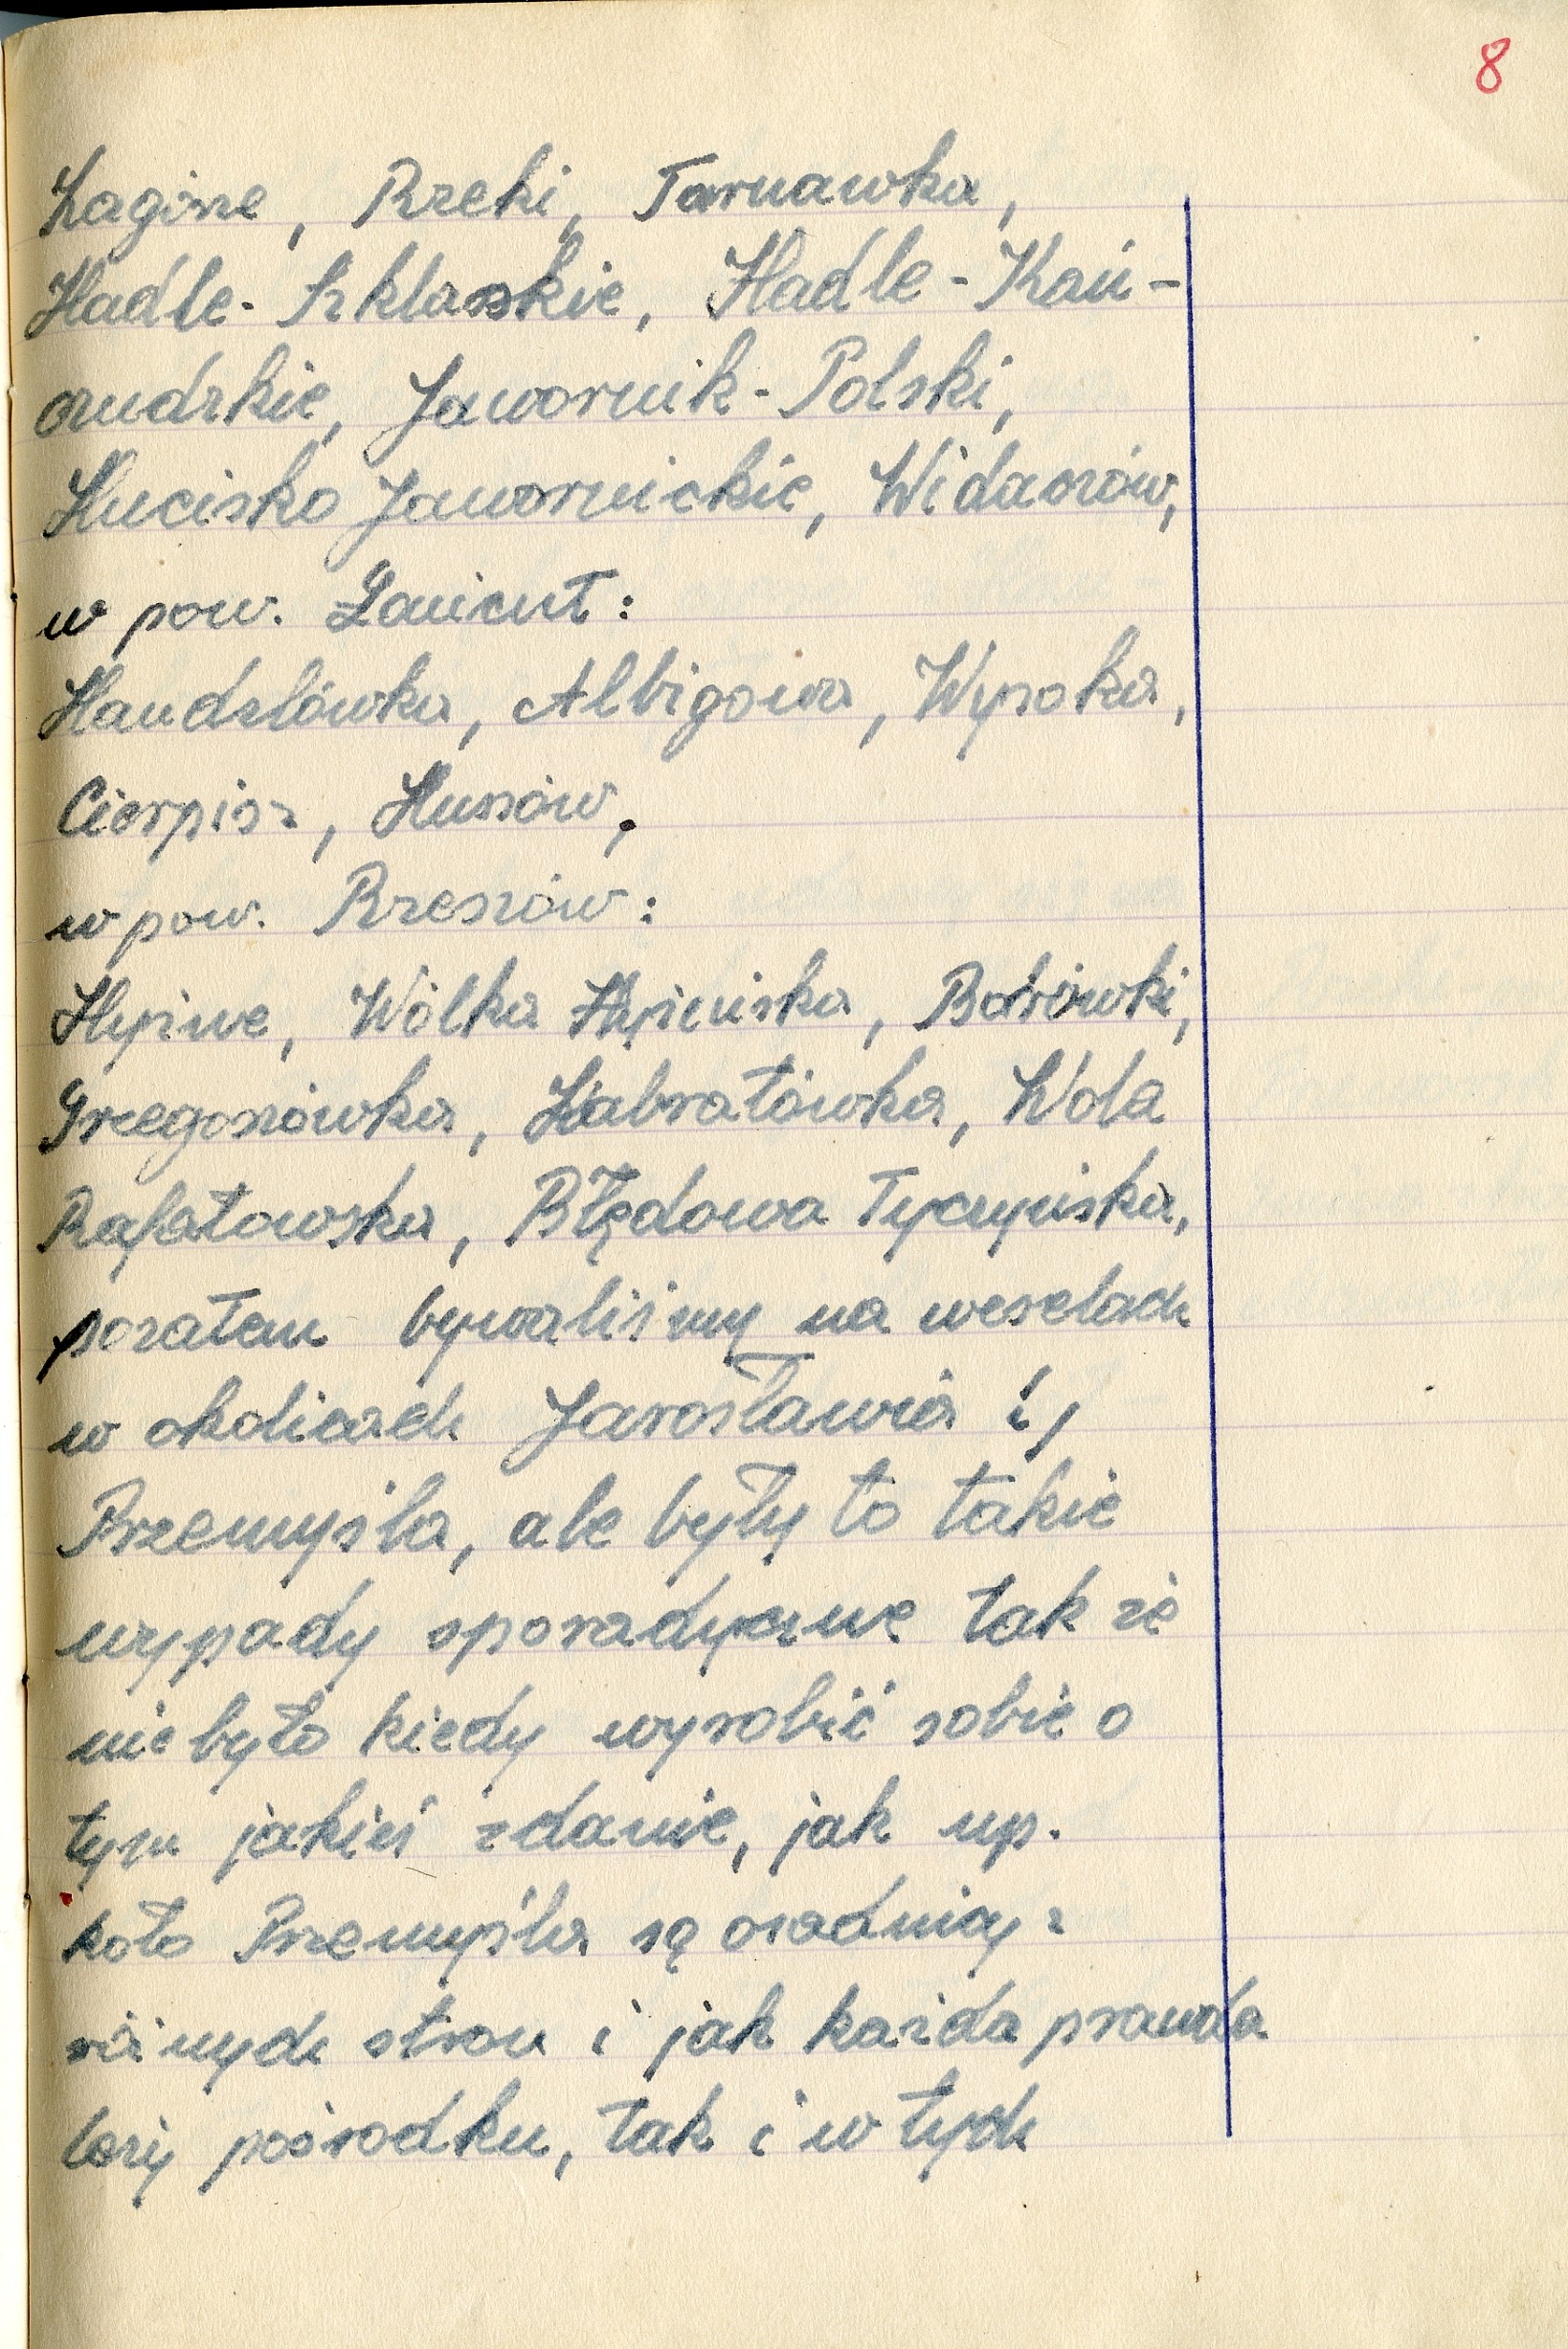 8
Zagórze, Rzeki, Tarnawka,
Hadle-Szklarskie, Hadle-Kań-
czudzkie, Jawornik-Polski,
Hucisko Jawornickie, Widaczów,
w pow. Łańcut:
Handzlówka, Albigowa, Wysoka,
Cierpisz, Hussów,
w pow. Rzeszów:
Hyżne, Wólka Hyżnińska, Borówki,
Grzegorzówka, Zabratówka, Wola
Rafałowska, Błędowa Tyczyńska,
pozatem bywaliśmy na weselach
w okolicach Jarosławia i,
Przemyśla, ale były to takie
wypady sporadyczne tak że
nie było kiedy wyrobić sobie o
tym jakieś zdanie, jak np.
koło Przemyśla są osadnicy z
różnych stron i jak każda prawda
leży pośrodku, tak i w tych